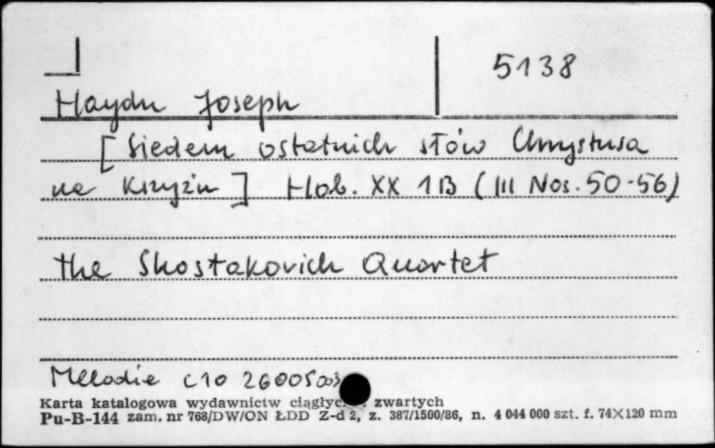 5138
Haydn Joseph
[ Siedem ostatnich słów Chrystusa
na krzyżu ] Hob. XX 1B (III Nos. 50-56)
the Shostakovich Quartet
Melodie C10 26005003
Karta katalogowa wydawnictw ciągłyc zwartych
Pu-B-144 zam. nr 768/DW/ON ŁDD Z-d 2, z. 387/1500/86, n. 4 044 000 szt. f. 74×120 mm